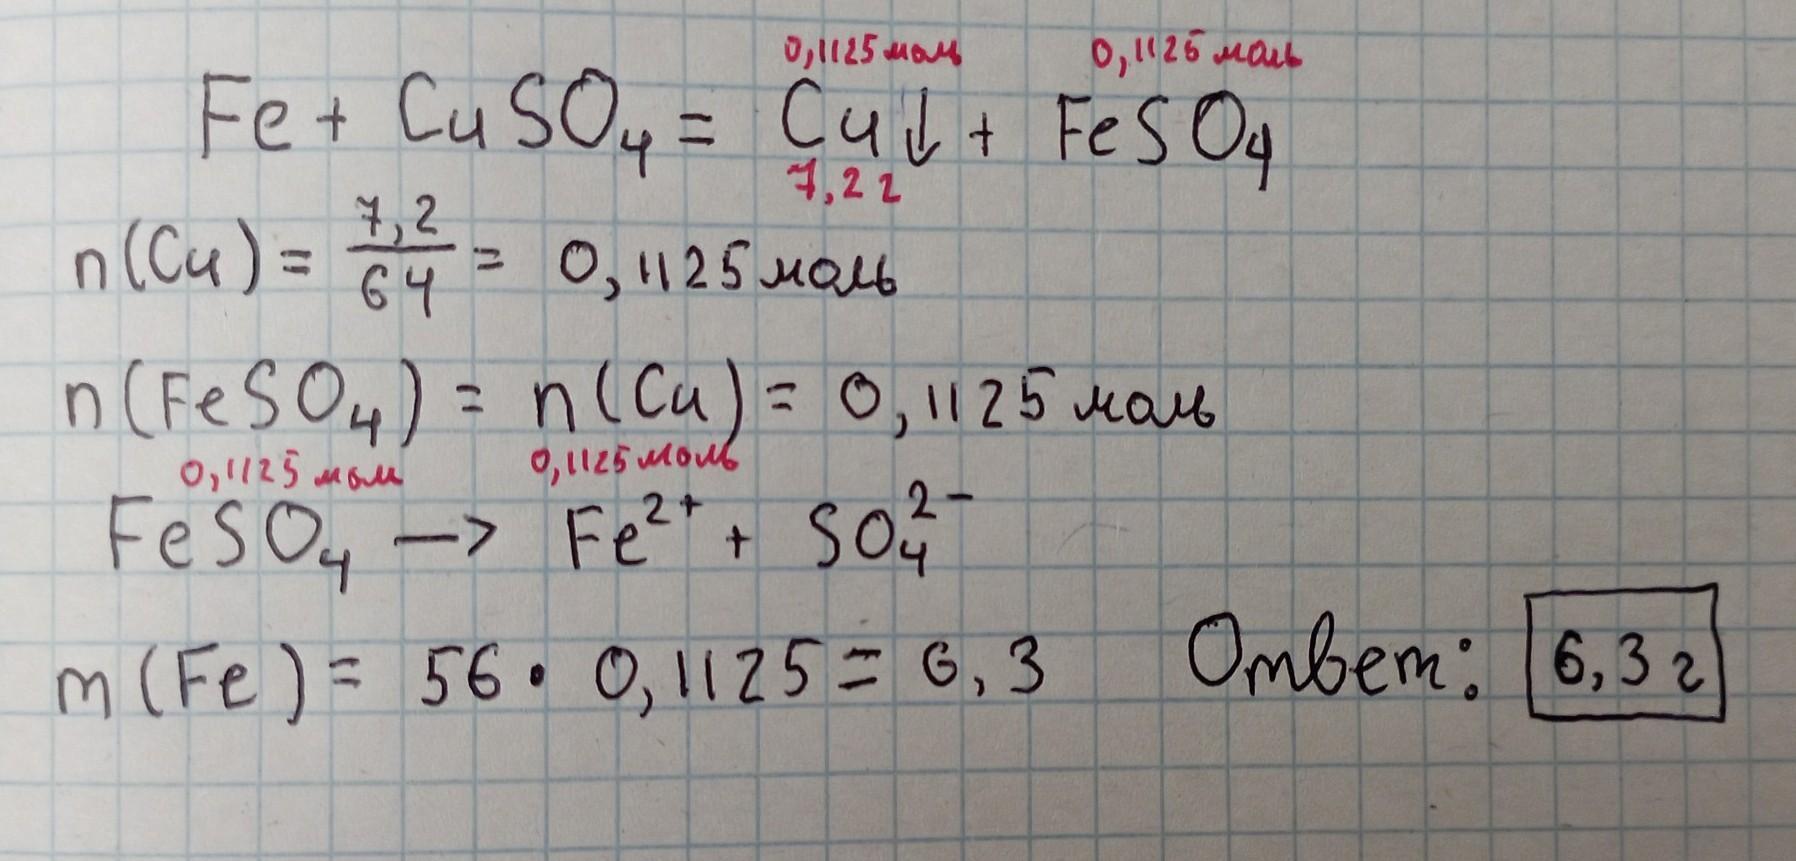 0,1125 моль 0,1125 моль
Fe + CuSO₄ = Cu↓ + FeSO₄
7,2 г
n(Cu) = 7,2/64 = 0,1125 моль
n(FeSO₄) = n(Cu) = 0,1125 моль
0,1125 моль 0,1125 моль
FeSO₄ —> Fe²⁺ + SO₄²⁻
m(Fe) = 56 · 0,1125 = 6,3 Ответ: 6,3 г